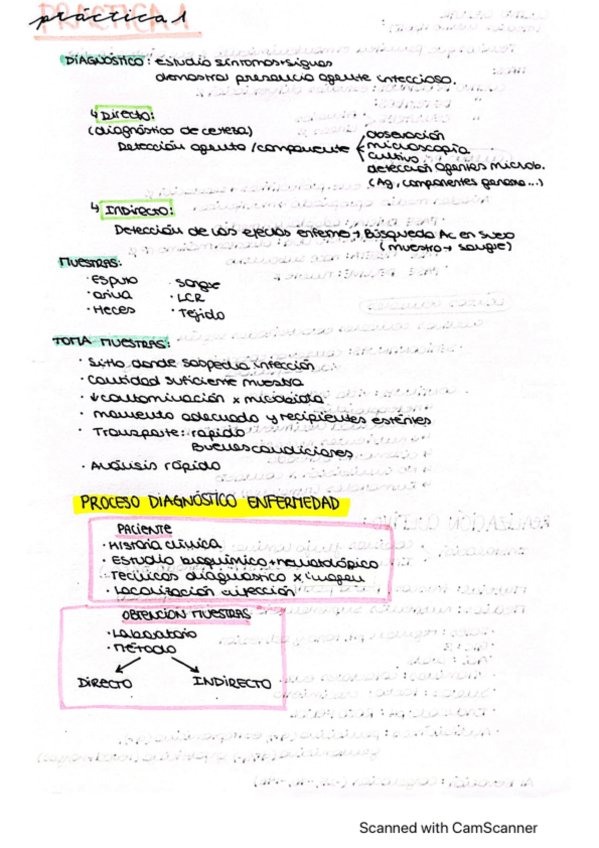 práctica 1
PRÁCTICA 1
DIAGNÓSTICO: estudio síntomas+signos
demostrar presencia agente infeccioso.
↳ Directo:
(diagnóstico de certeza)
Detección agente/componente
observación
microscopía
cultivo
detección agentes microb.
(Ag, componentes genoma...)
↳ INDIRECTO:
Detección de los efectos enferme → Búsqueda Ac en suero
(muestra → sangre)
MUESTRAS:
· Esputo · Sangre
· Orina · LCR
· Heces · Tejido
TOMA MUESTRAS:
· Sitio donde sospecha infección
· Cantidad suficiente muestra
· ↓ contaminación x microbiota
· momento adecuado y recipientes estériles
· Transporte: rápido
Buenas condiciones
· Análisis rápido
PROCESO DIAGNÓSTICO ENFERMEDAD
PACIENTE
· Historia clínica
· Estudio bioquímico+hematológico
· Técnicas diagnóstico x imagen
· Localización infección
OBTENCIÓN MUESTRAS
· Laboratorio
· Método
DIRECTO INDIRECTO
Scanned with CamScanner